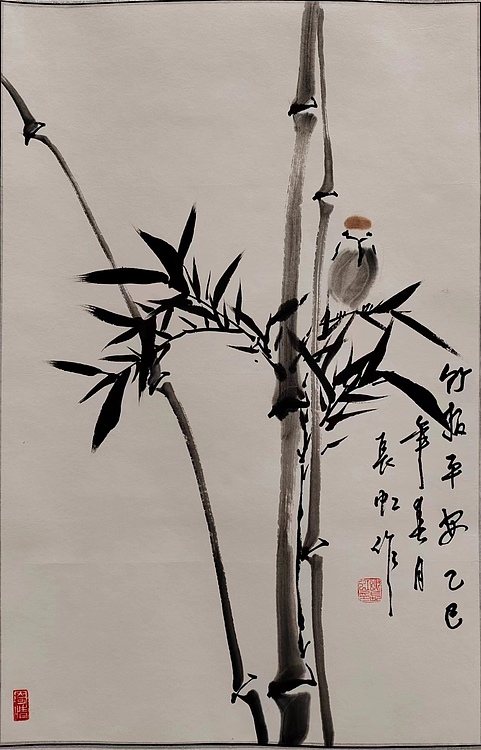 竹报平安 乙巳
年春月
长虹作